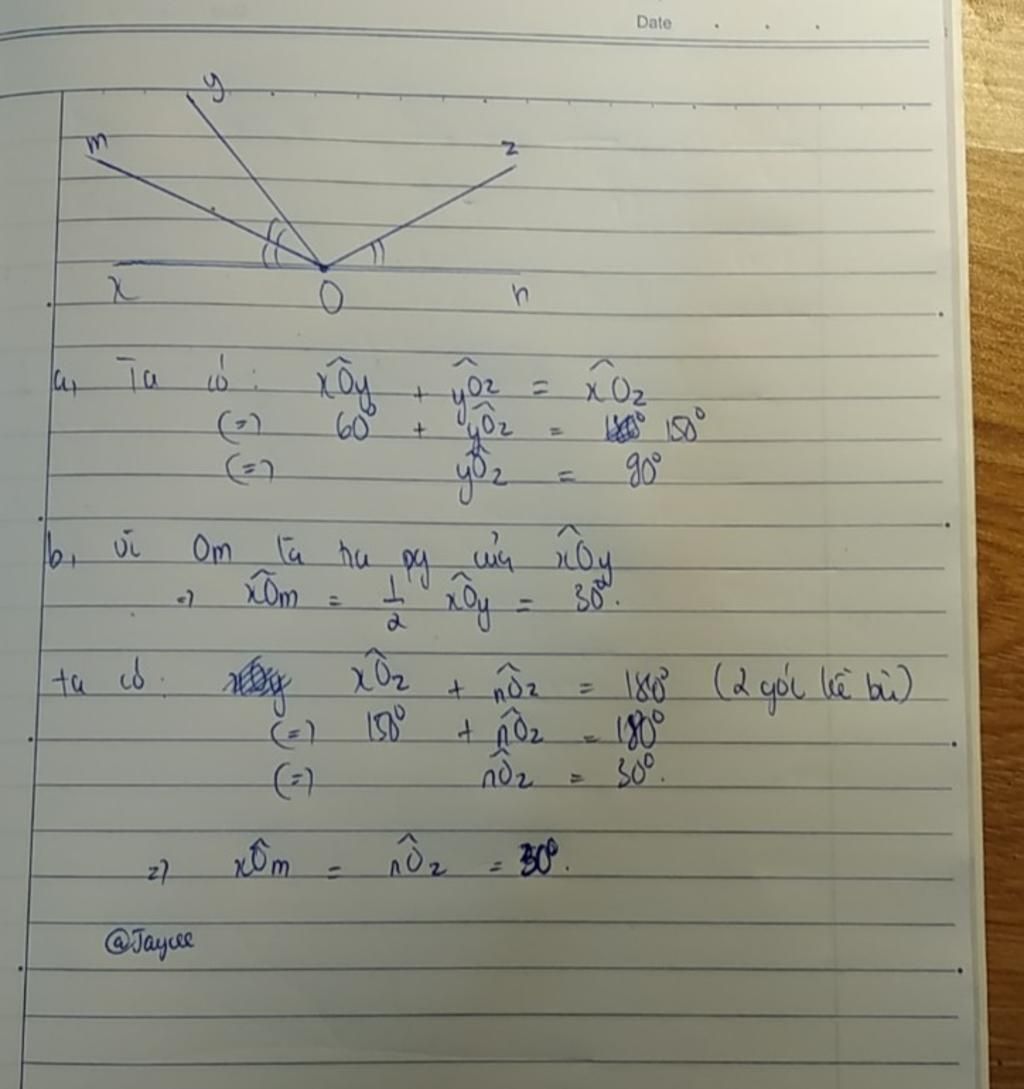 Date
y
m
z
x
O
n
a, Ta có: xÔy + yÔz = xÔz
(=) 60° + yÔz = 150°
(=) yÔz = 90°
b, vì Om là tia pg của xÔy
=) xÔm = 1/2 xÔy = 30°.
ta có: xÔz + nÔz = 180° (2 góc kề bù)
(=) 150° + nÔz = 180°
(=) nÔz = 30°.
=) xÔm = nÔz = 30°.
@Jaycee